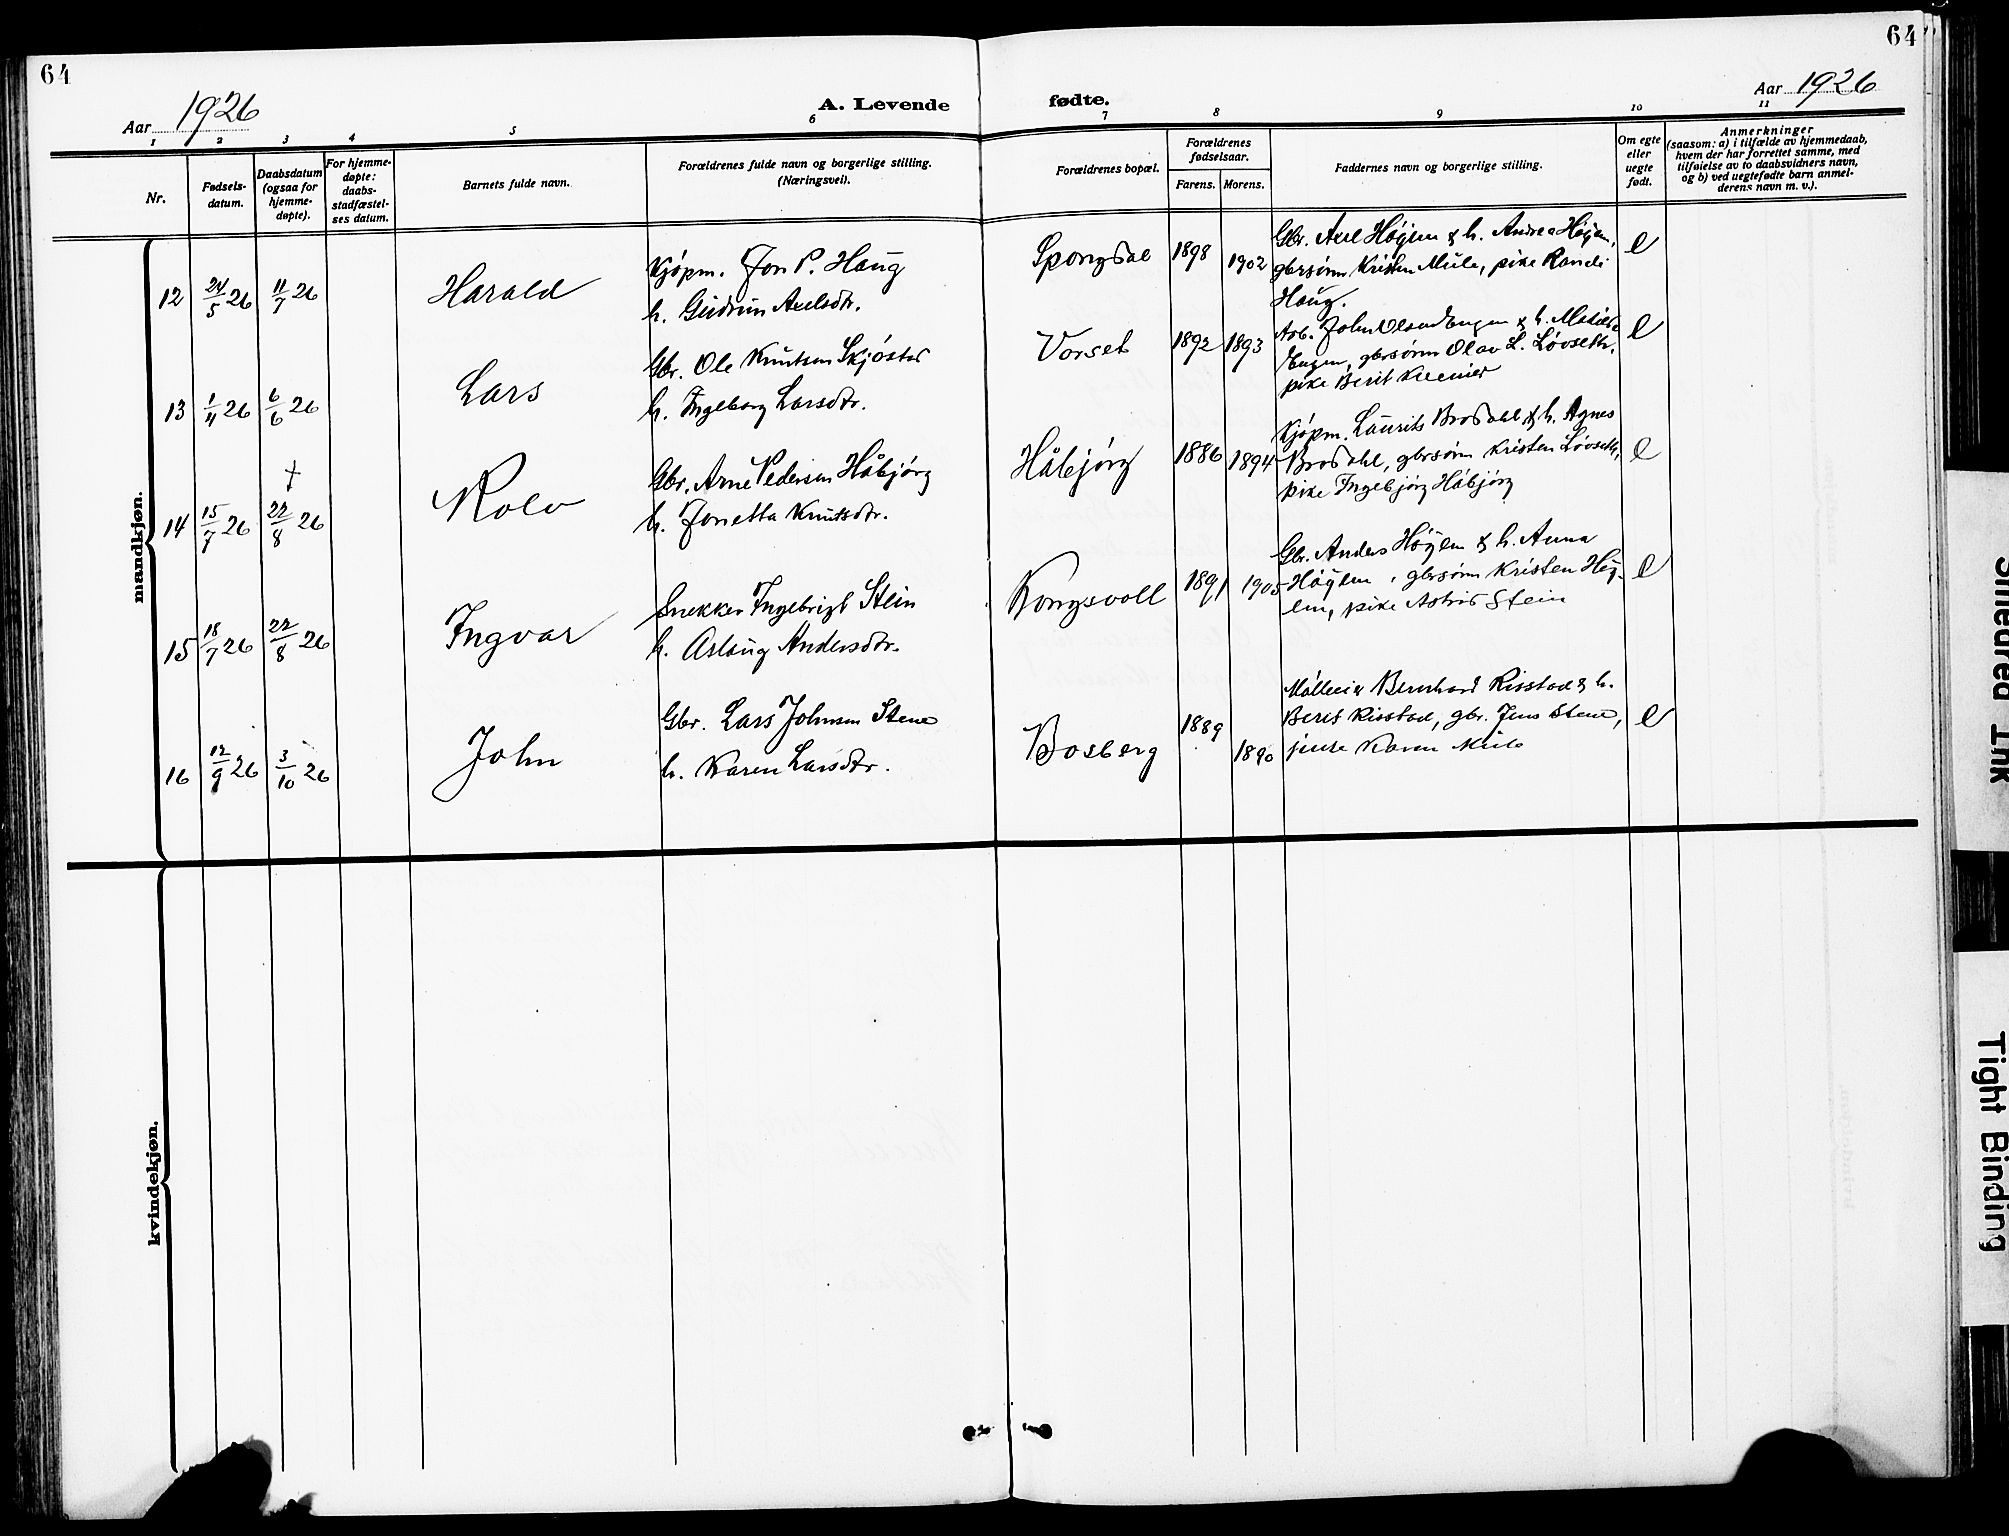 64
64
Aar 1926
A. Levende fødte.
Aar 1926
1 2 3 4 5 6 7 8 9 10 11
Nr.
Fødsels-
datum.
Daabsdatum
(ogsaa for
hjemme-
døpte).
For hjemme-
døpte:
daabs-
stadfæstel-
ses datum.
Barnets fulde navn.
Forældrenes fulde navn og borgerlige stilling.
(Næringsvei).
Forældrenes bopæl.
Forældrenes
fødselsaar.
Farens. Morens.
Faddernes navn og borgerlige stilling.
Om egte
eller
uegte
født.
Anmerkninger
(saasom: a) i tilfælde av hjemmedaab,
hvem der har forrettet samme, med
tilføielse av to daabsvidners navn,
og b) ved uegtefødte barn anmel-
derens navn m. v.).
mandkjøn.
12 24/5 26 11/7 26 Harald
Kjøpm. Jon P. Haug
h. Gudrun Axelsdtr.
Spongdal 1898 1902
Gbr. Axel Høÿem & h. Andrea Høÿem,
gbrsønn Kristen Mule, pike Randi
Haug.
e
13 1/4 26 6/6 26 Lars
Gbr. Ole Knutsen Skjøstad
h. Ingeborg Larsdtr.
Vorset 1892 1893
Arb. John Olsen Engen & h. Matilde
Engen, gbrsønn Olav L. Løvseth,
pike Berit
e
14 15/7 26 † 22/8 26 Rolv
Gbr. Arne Pedersen Håbjørg
h. Jonetta Knutsdtr.
Håbjørg 1886 1894
Kjøpm. Laurits Brodahl & h. Agnes
Brodahl, gbrsønn Kristen Løvseth,
pike Ingebjørg Håbjørg
e
15 18/7 26 22/8 26 Ingvar
Snekker Ingebrigt Stein
h. Aslaug Andersdtr.
Kongsvoll 1891 1905
Gbr. Anders Høÿem & h. Anna
Høÿem, gbrsønn Kristen Høÿ-
em, pike Astrid Stein
e
16 12/9 26 3/10 26 John
Gbr. Lars Johnsen Stene
h. Karen Larsdtr.
Bosberg 1889 1890
Bernhard Risstad & h.
Berit Risstad, gbr. Jens Stene,
Karen Mule
e
kvindekjøn.
Smeared Ink
Tight Binding